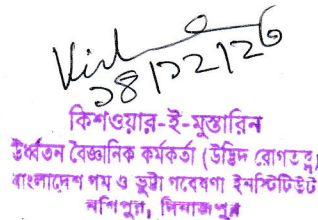 ১৪/১২/২৫
কিশওয়ার-ই-মুস্তারিন
উর্ধ্বতন বৈজ্ঞানিক কর্মকর্তা (উদ্ভিদ রোগতত্ত্ব)
বাংলাদেশ গম ও ভুট্টা গবেষণা ইনস্টিটিউট
নশিপুর, দিনাজপুর